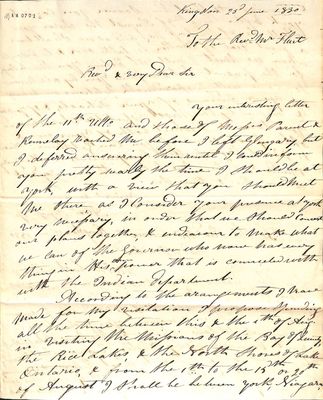 AA0701
Kingston 25th June 1830
To the Revd Mr Flint
Revd & very Dear Sir
your interesting letter
of the 11th Ulto and those of Messrs
before I left Glengary but
I deferred answering them until I could inform
you pretty nearly the time I should be at
York, with a view that you should meet
me there as I consider your presence at York
very necessary, in order that we should concert
our plans together, & endeavour to make what
we can of the Governor who now has every
thing in his power that is connected with
with the Indian Department.
According to the arrangements I have
made for my visitation I propose spending
all the time between this & the 1st of Aug
in visiting the Missions of the Bay of
the Rice Lakes, & the North Shores of Lake
Ontario, & from the 1st to the 15th or 20th
of August I shall be between York, Niagara